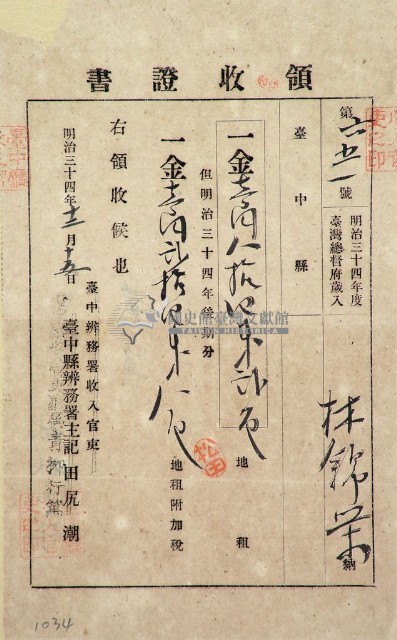 領收證書
第六五一號
明治三十四年度
臺灣總督府歲入
臺中縣
林錦榮 納
一金壹圓八拾四錢弍厘 地租
但明治三十四年後期分
一金壹圓弍拾四錢八厘 地租附加稅
右領收候也
明治三十四年十二月十五日
臺中辨務署收入官吏
臺中縣辨務署主記 田尻 潮
松田
國史館臺灣文獻館
1034